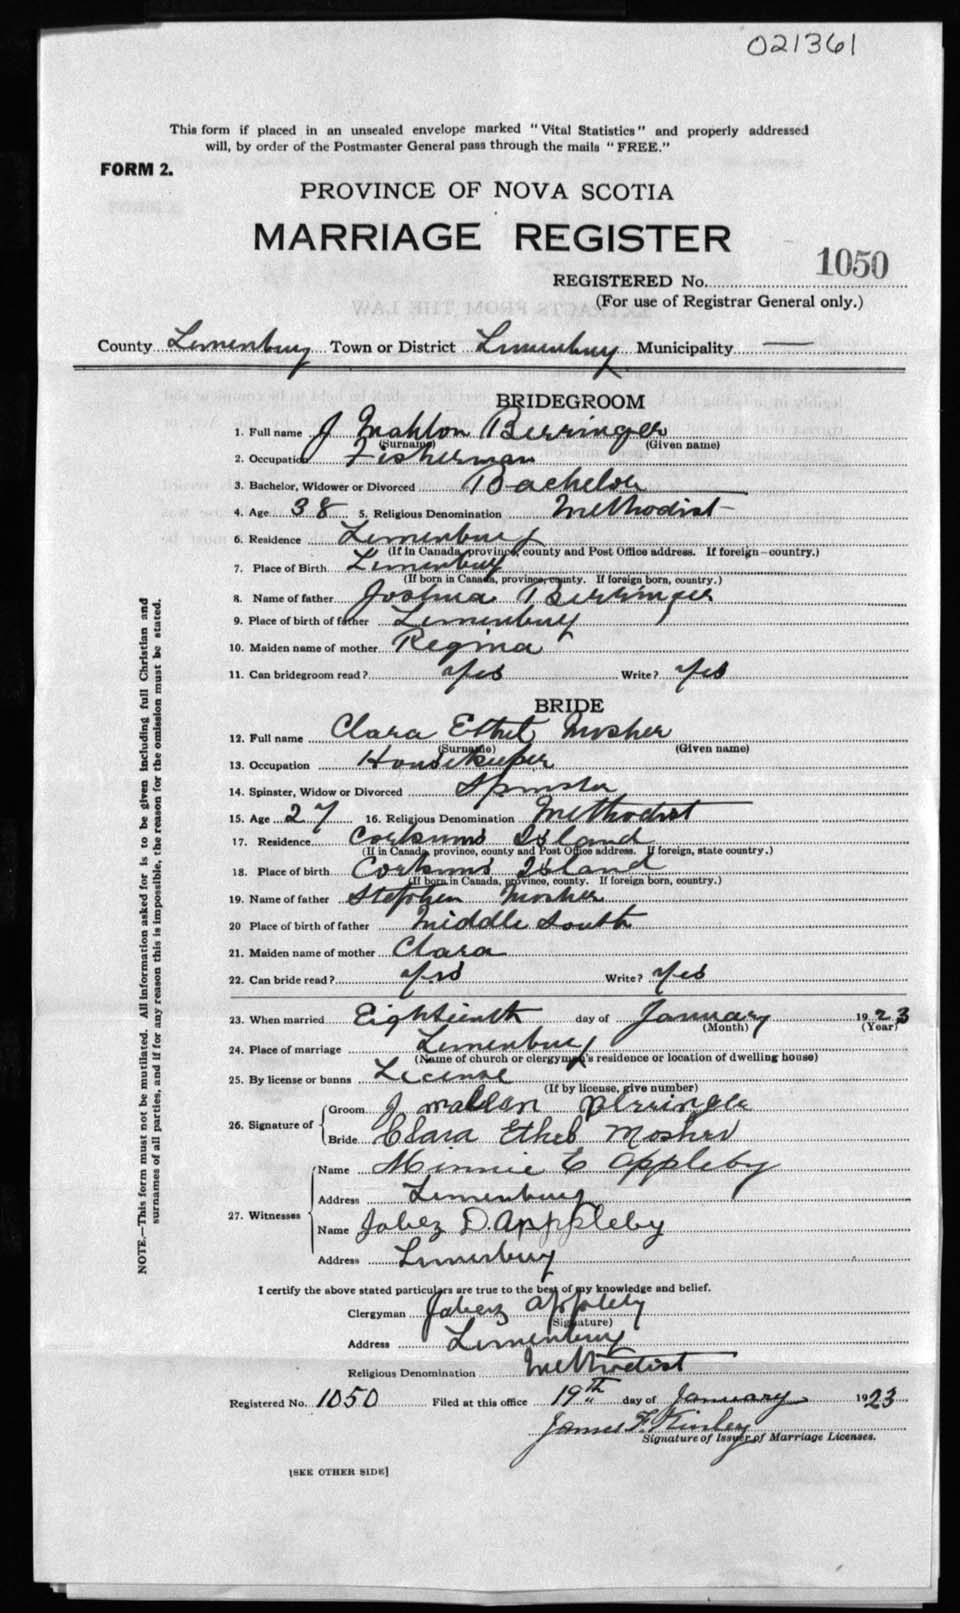 021361
This form if placed in an unsealed envelope marked "Vital Statistics" and properly addressed
will, by order of the Postmaster General pass through the mails "FREE."
FORM 2.
PROVINCE OF NOVA SCOTIA
MARRIAGE REGISTER
REGISTERED No. 1050
(For use of Registrar General only.)
County Lunenburg Town or District Lunenburg Municipality —
BRIDEGROOM
1. Full name J Mahlon Berringer
(Surname) (Given name)
2. Occupation Fisherman
3. Bachelor, Widower or Divorced Bachelor
4. Age 38 5. Religious Denomination Methodist
6. Residence Lunenburg
(If in Canada, province, county and Post Office address. If foreign—country.)
7. Place of Birth Lunenburg
(If born in Canada, province, county. If foreign born, country.)
8. Name of father Joshua Berringer
9. Place of birth of father Lunenburg
10. Maiden name of mother Regina
11. Can bridegroom read? Yes Write? Yes
BRIDE
12. Full name Clara Ethel Mosher
(Surname) (Given name)
13. Occupation Housekeeper
14. Spinster, Widow or Divorced Spinster
15. Age 27 16. Religious Denomination Methodist
17. Residence Corkums Island
(If in Canada, province, county and Post Office address. If foreign, state country.)
18. Place of birth Corkums Island
(If born in Canada, province, county. If foreign born, country.)
19. Name of father Stephen Mosher
20 Place of birth of father Middle South
21. Maiden name of mother Clara
22. Can bride read? Yes Write? Yes
23. When married Eighteenth day of January 1923
(Month) (Year)
24. Place of marriage Lunenburg
(Name of church or clergyman's residence or location of dwelling house)
25. By license or banns License
(If by license, give number)
26. Signature of Groom J Mahlon Berringer
Bride Clara Ethel Mosher
27. Witnesses Name Minnie E Appleby
Address Lunenburg
Name Jabez D. Appleby
Address Lunenburg
I certify the above stated particulars are true to the best of my knowledge and belief.
Clergyman Jabez Appleby
(Signature)
Address Lunenburg
Religious Denomination Methodist
Registered No. 1050 Filed at this office 19th day of January 1923
James F. Kinley
Signature of Issuer of Marriage Licenses.
[SEE OTHER SIDE]
NOTE.—This form must not be mutilated. All information asked for is to be given including full Christian and
surnames of all parties, and if for any reason this is impossible, the reason for the omission must be stated.